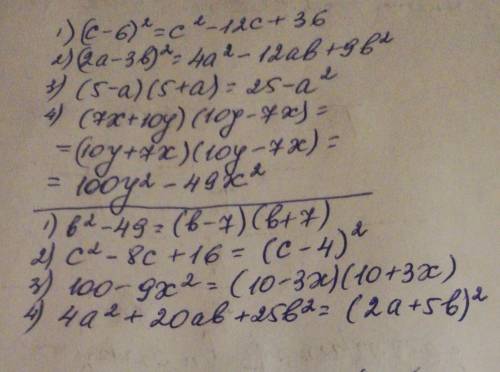 1) (c-6)² = c² - 12c + 36
2) (2a-3b)² = 4a² - 12ab + 9b²
3) (5-a)(5+a) = 25 - a²
4) (7x+10y)(10y-7x) =
= (10y+7x)(10y-7x) =
= 100y² - 49x²
1) b² - 49 = (b-7)(b+7)
2) c² - 8c + 16 = (c-4)²
3) 100 - 9x² = (10-3x)(10+3x)
4) 4a² + 20ab + 25b² = (2a+5b)²